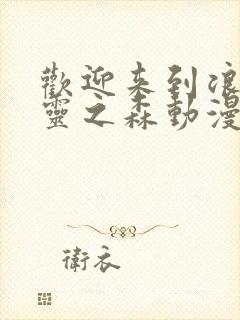 歡迎来到浪
靈之森動漫
衛衣